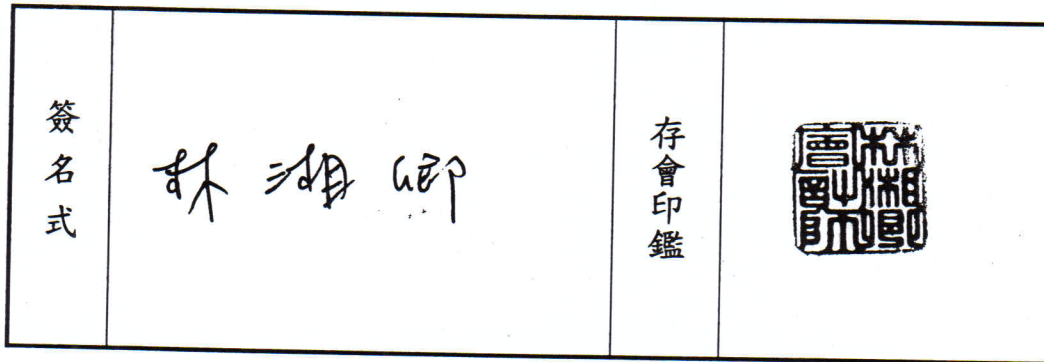 簽名式
林湘卿
存會印鑑
林湘卿
會計師